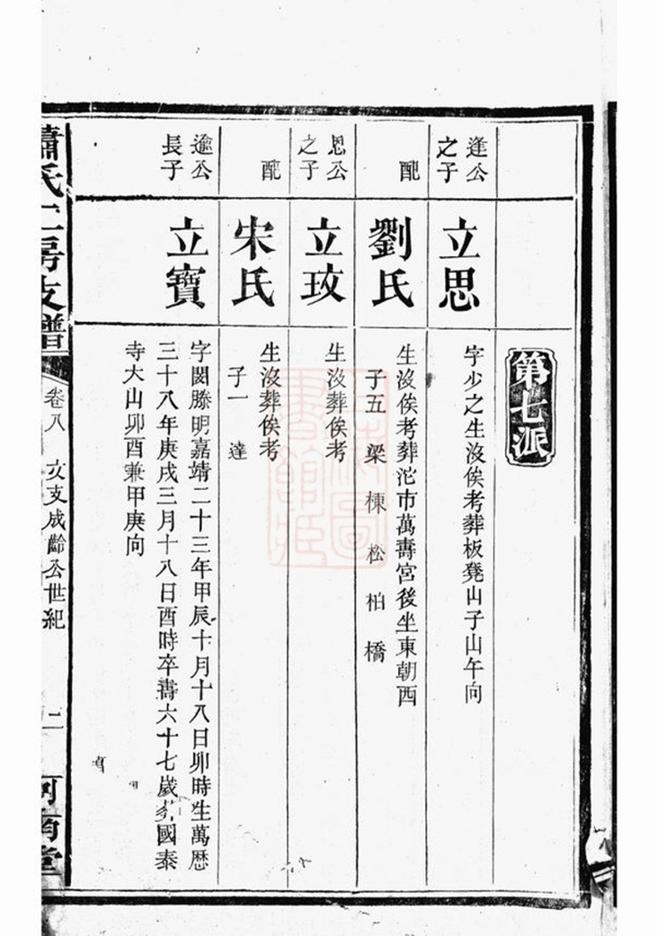 第七派
逢公
之子
立思
字少之生沒俟考葬板凳山子山午向
配
劉氏
生沒俟考葬沱市萬壽宮後坐東朝西
子五 梁 棟 松 柏 橋
恩公
之子
立玫
生沒葬俟考
配
宋氏
生沒葬俟考
子一 達
逾公
長子
立寶
字閎滕明嘉靖二十三年甲辰十月十八日卯時生萬歷
三十八年庚戌三月十八日酉時卒壽六十七歲葬國泰
寺大山卯酉兼甲庚向
蕭氏二房支譜
卷八
文支成齡公世紀
二
河南堂